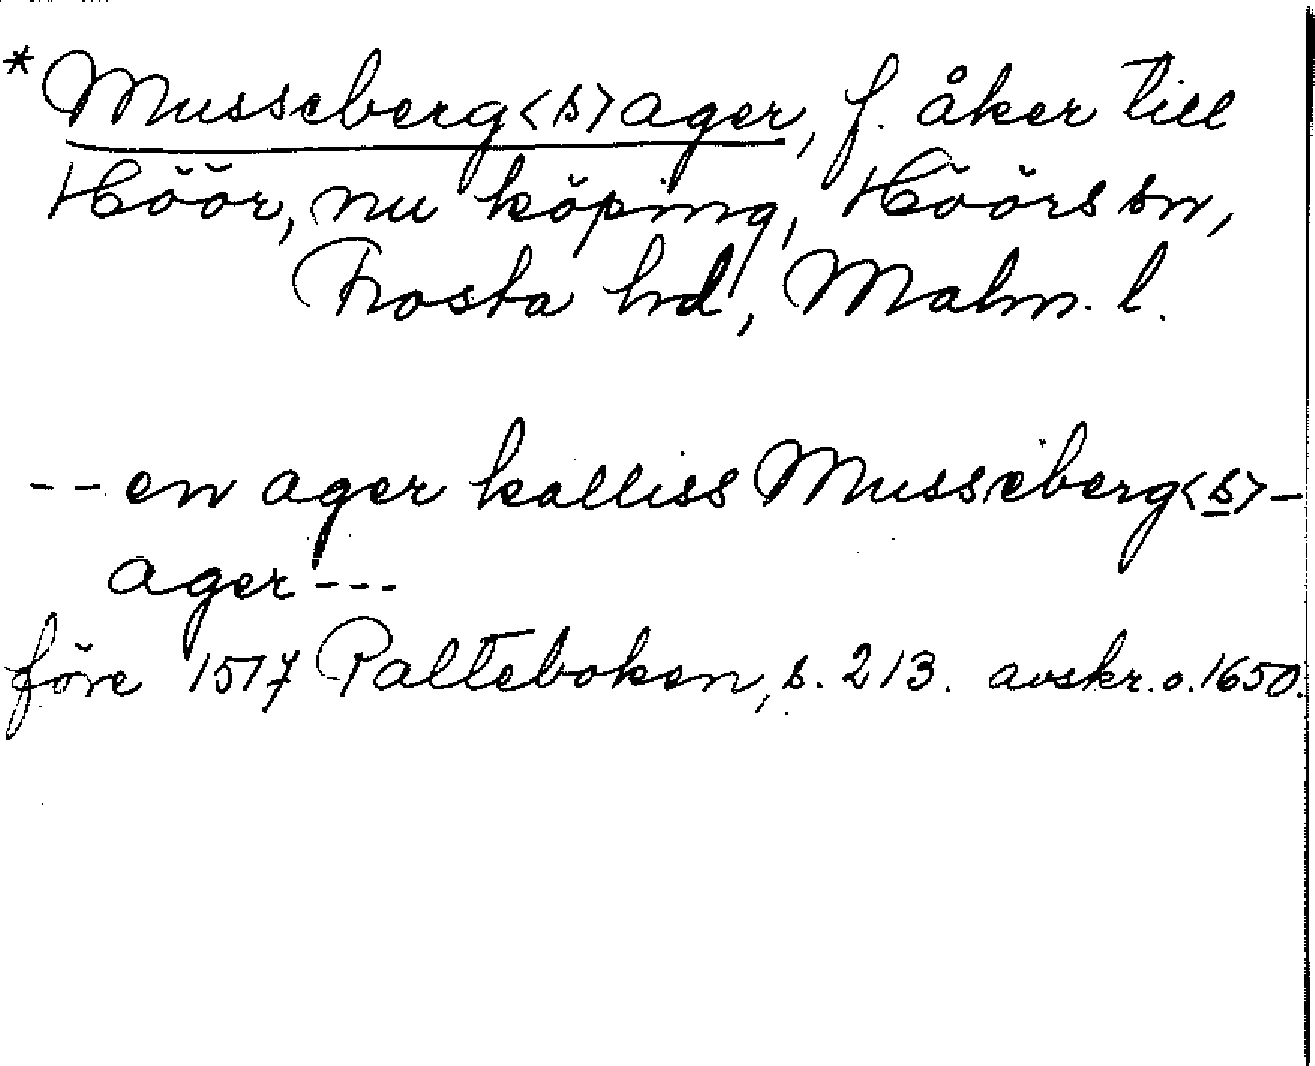 *Musseberg<s>ager, f. åker till
Höör, nu köping, Höörs sn,
Frosta hd, Malm. l.
-- en ager kalliss Musseberg<s>-
ager ---
före 1517 Palteboken, s. 213. avskr. o. 1650.